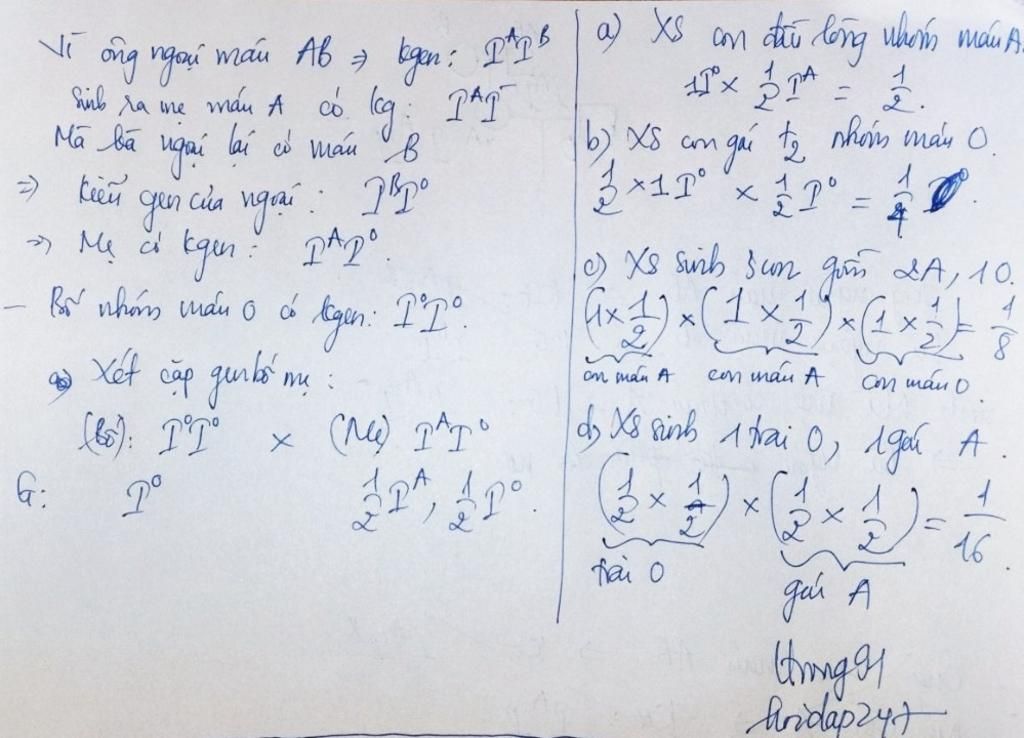 Vì ông ngoại máu AB ⇒ kgen: IᴬIᴮ
Sinh ra mẹ máu A có kg: IᴬI⁻
Mà bà ngoại lại có máu B
⇒ kiểu gen của ngoại: IᴮI⁰
⇒ Mẹ có kgen: IᴬI⁰.
- Bố nhóm máu O có kgen: I⁰I⁰.
Xét cặp gen bố mẹ:
(Bố): I⁰I⁰ × (Mẹ) IᴬI⁰
G: I⁰ 1/2 Iᴬ, 1/2 I⁰.
a) XS con đầu lòng nhóm máu A.
1I⁰ × 1/2 Iᴬ = 1/2.
b) XS con gái t2 nhóm máu O.
1/2 × 1I⁰ × 1/2 I⁰ = 1/4
c) XS sinh 3 con gồm 2A, 1O.
(1 × 1/2) × (1 × 1/2) × (1 × 1/2) = 1/8
con máu A con máu A con máu O
d) XS sinh 1 trai O, 1 gái A.
(1/2 × 1/2) × (1/2 × 1/2) = 1/16
trai O
gái A
hoidap247